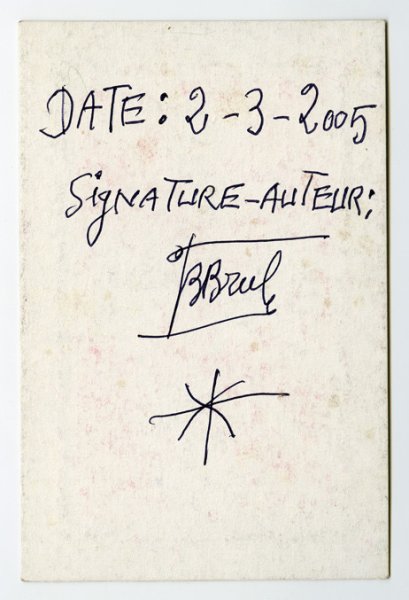 DATE: 2-3-2005
SigNATURE-AUTEUR:
BBrul